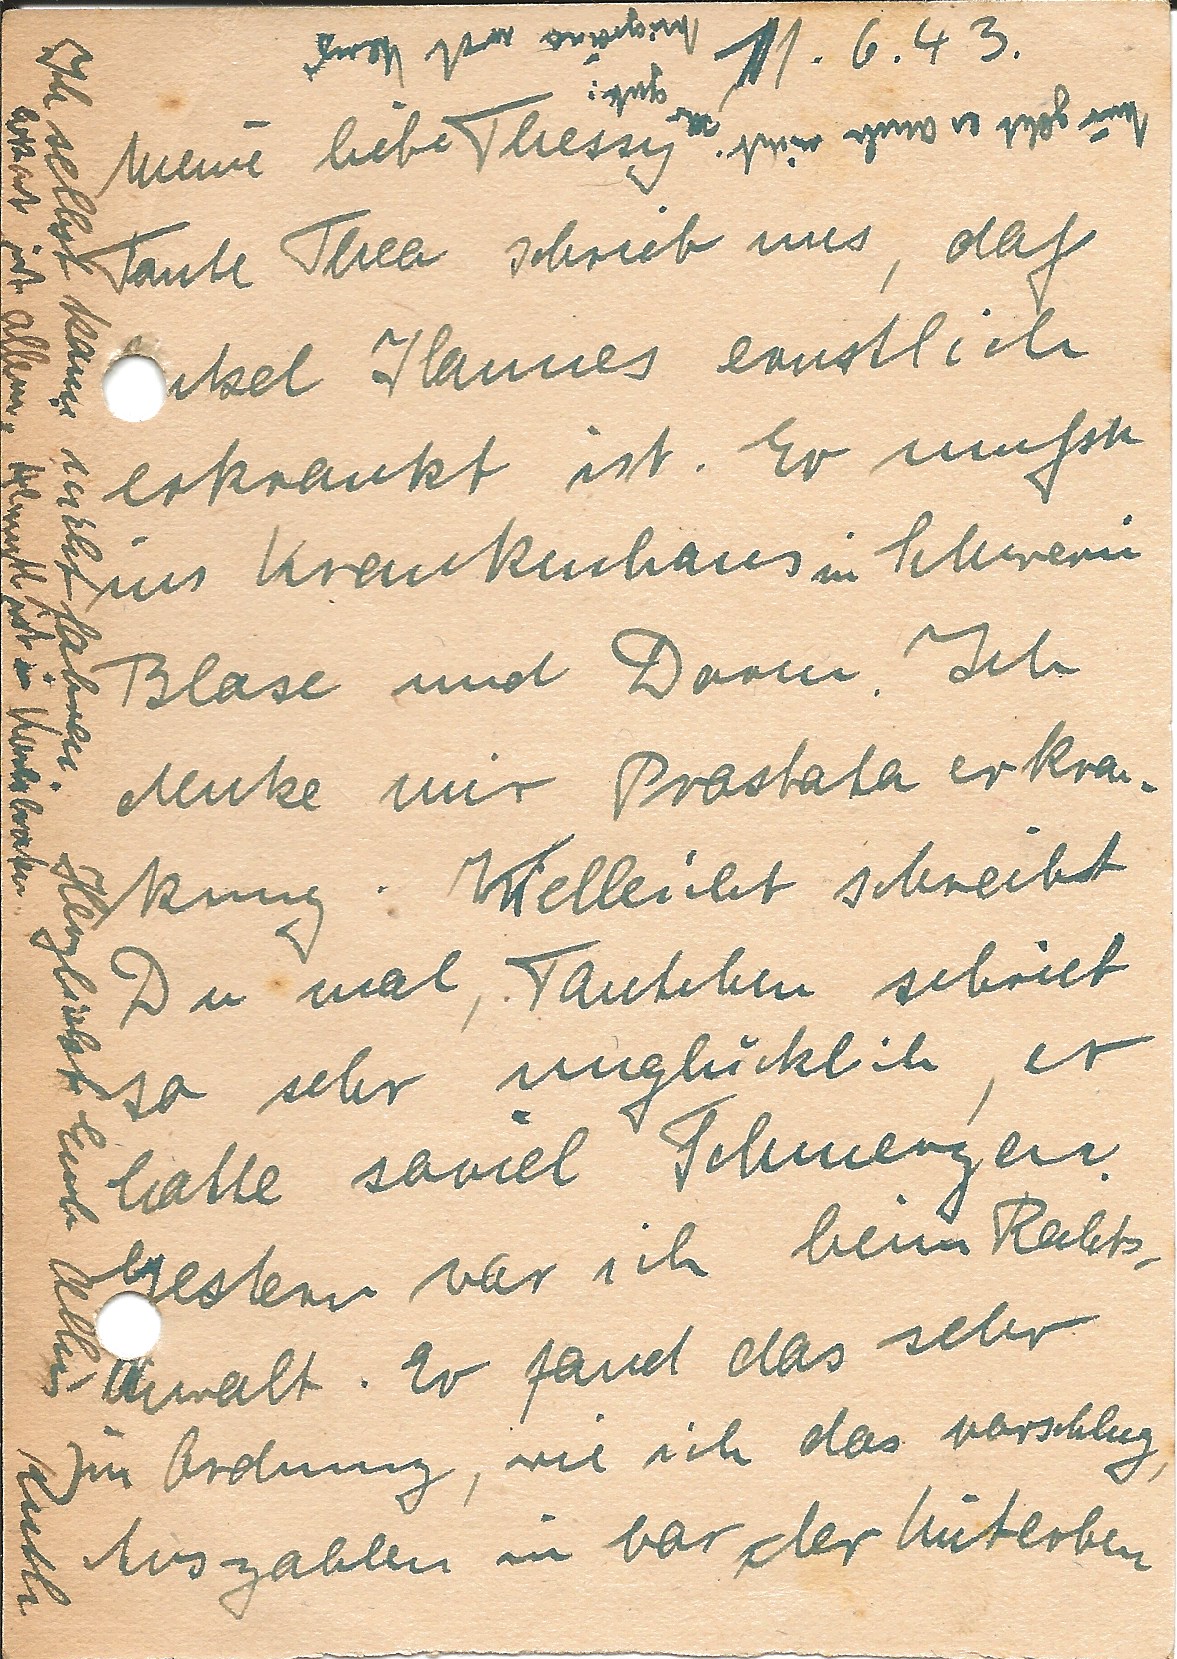 11.6.43.
Meine liebe Thessy
Tante Thea schrieb uns, daß
Onkel Hannes ernstlich
erkrankt ist. Er mußte
ins Krankenhaus in Schwerin
Blase und Darm. Ich
denke mir Prostata erkran-
kung. Vielleicht schreibst
Du mal, Tantchen schrieb
so sehr unglücklich, er
hatte soviel Schmerzen.
Gestern war ich beim Rechts-
anwalt. Er fand das sehr
in Ordnung, wie ich das vorschlug,
Auszahlen in bar der Miterben
Ich selbst kann nicht fahren. Herzlichst Euch allen
Ruth
ist allem, Helmuth ist in
mir geht es auch nicht
gut:
Migräne und Herz